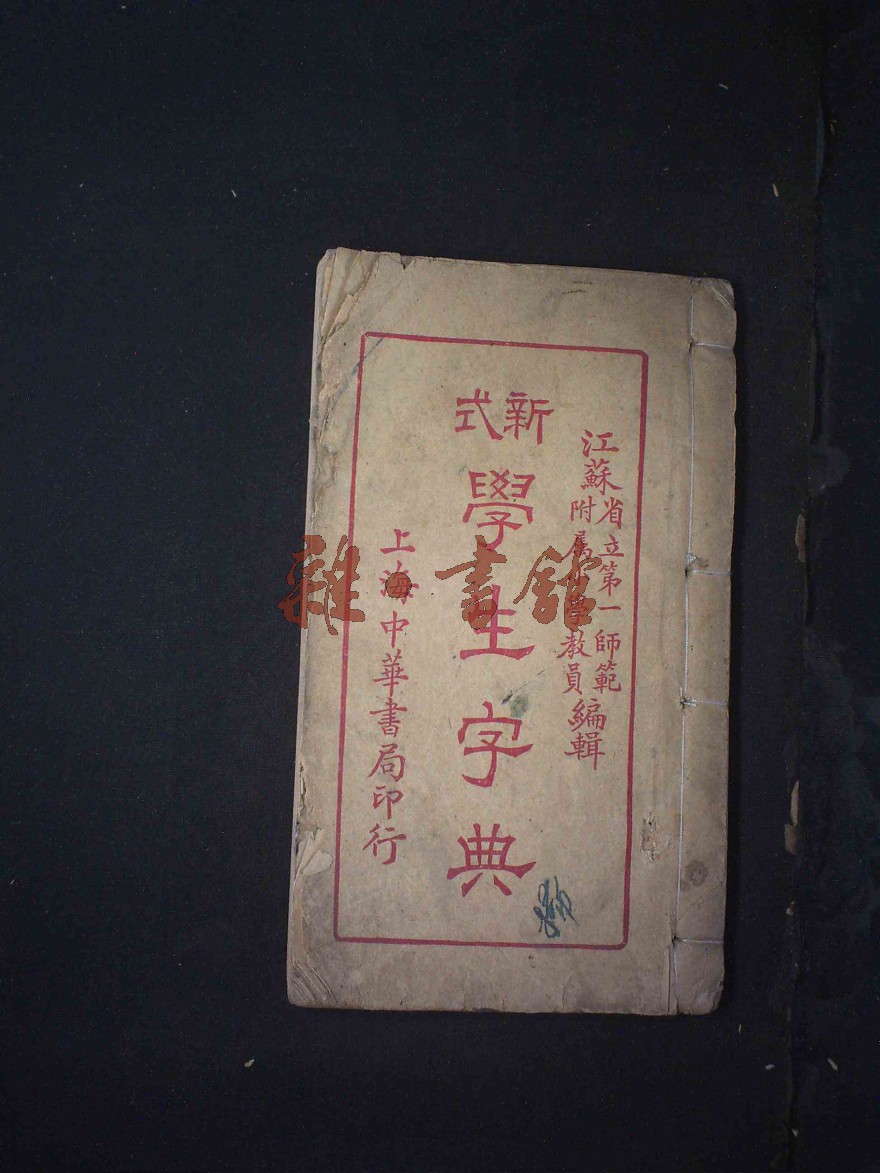 江蘇
省立第一師範
附属小學教員
編輯
新式
學生字典
上海中華書局印行
雜書館